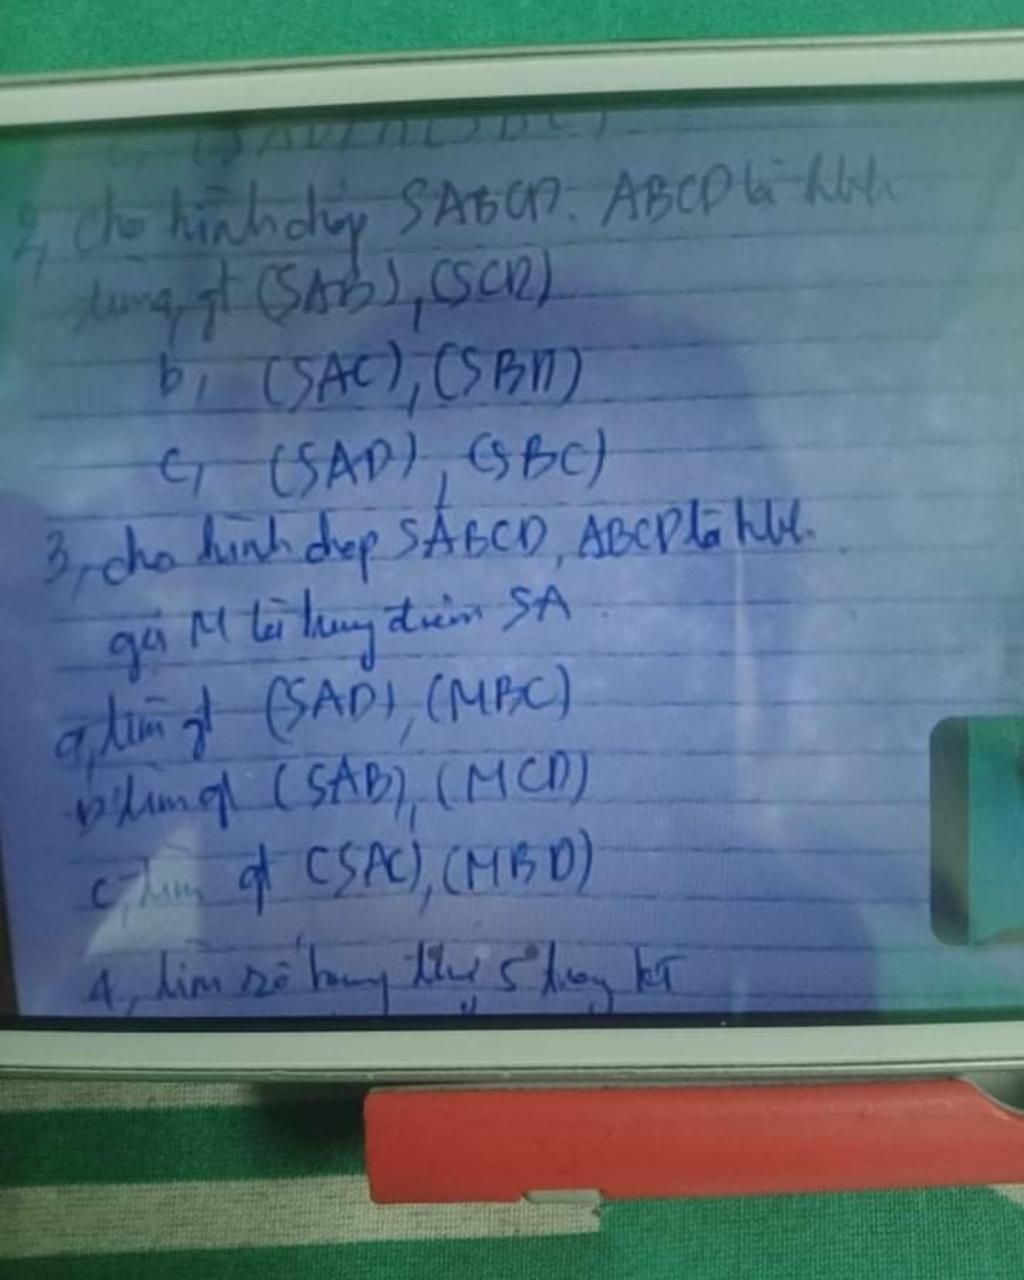 c, (SAD) ∩ (SBC)
2, cho hình chóp SABCD. ABCD là hbh
tìm gt (SAB), (SCD)
b, (SAC), (SBD)
c, (SAD), (SBC)
3, cho hình chóp SABCD, ABCD là hbh.
gọi M là trung điểm SA
a, tìm gt (SAD), (MBC)
b, tìm gt (SAB), (MCD)
c, tìm gt (SAC), (MBD)
4, tìm số hạng thứ 5 trong kT